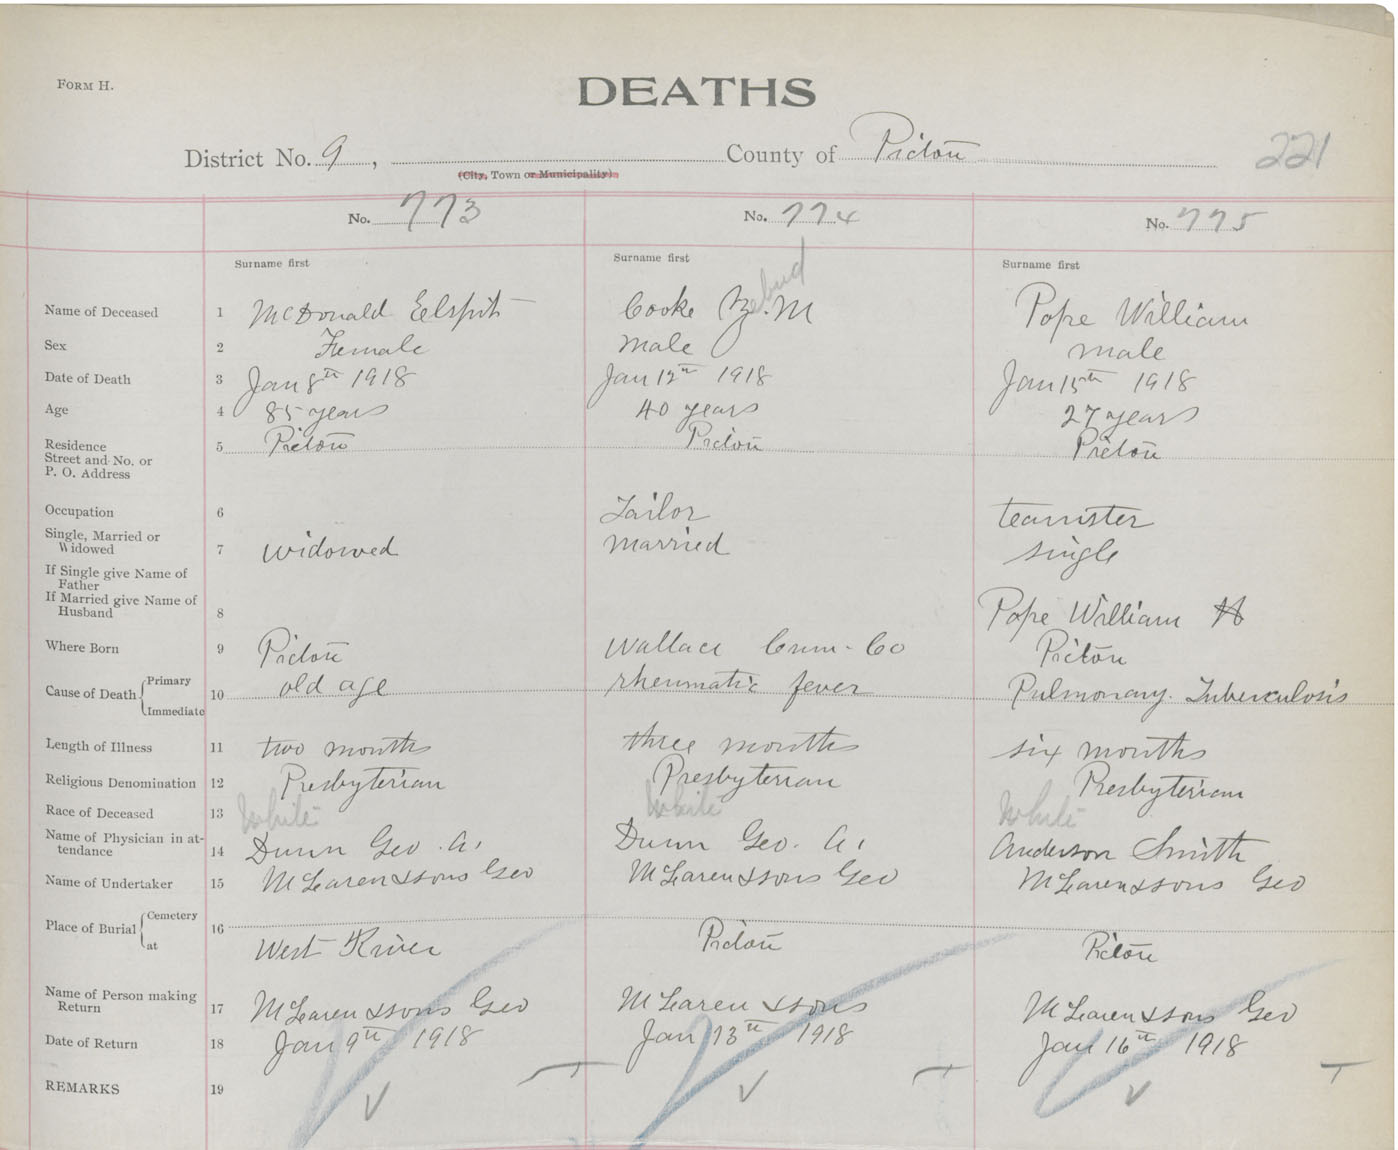 FORM H.
DEATHS
District No. 9, County of Pictou 221
(City, Town or Municipality)
No. 773 No. 774 No. 775
Surname first Surname first Surname first
Name of Deceased 1 McDonald Elspit Cooke M Pope William
Sex 2 Female male male
Date of Death 3 Jan 8th 1918 Jan 12th 1918 Jan 15th 1918
Age 4 85 years 40 years 27 years
Residence 5 Pictou Pictou Pictou
Street and No. or
P. O. Address
Occupation 6 Tailor teamster
Single, Married or
Widowed 7 widowed married single
If Single give Name of
Father
If Married give Name of
Husband 8 Pope William H
Where Born 9 Pictou Wallace Cum. Co Pictou
Cause of Death Primary 10 old age rheumatic fever Pulmonary Tuberculosis
Immediate
Length of Illness 11 two months three months six months
Religious Denomination 12 Presbyterian Presbyterian Presbyterian
Race of Deceased 13 White White White
Name of Physician in at-
tendance 14 Dunn Geo. A. Dunn Geo. A. Anderson Smith
Name of Undertaker 15 McLaren & sons Geo McLaren & sons Geo McLaren & sons Geo
Place of Burial Cemetery 16
at West River Pictou Pictou
Name of Person making
Return 17 McLaren & sons Geo McLaren & sons McLaren & sons Geo
Date of Return 18 Jan 9th 1918 Jan 13th 1918 Jan 16th 1918
REMARKS 19